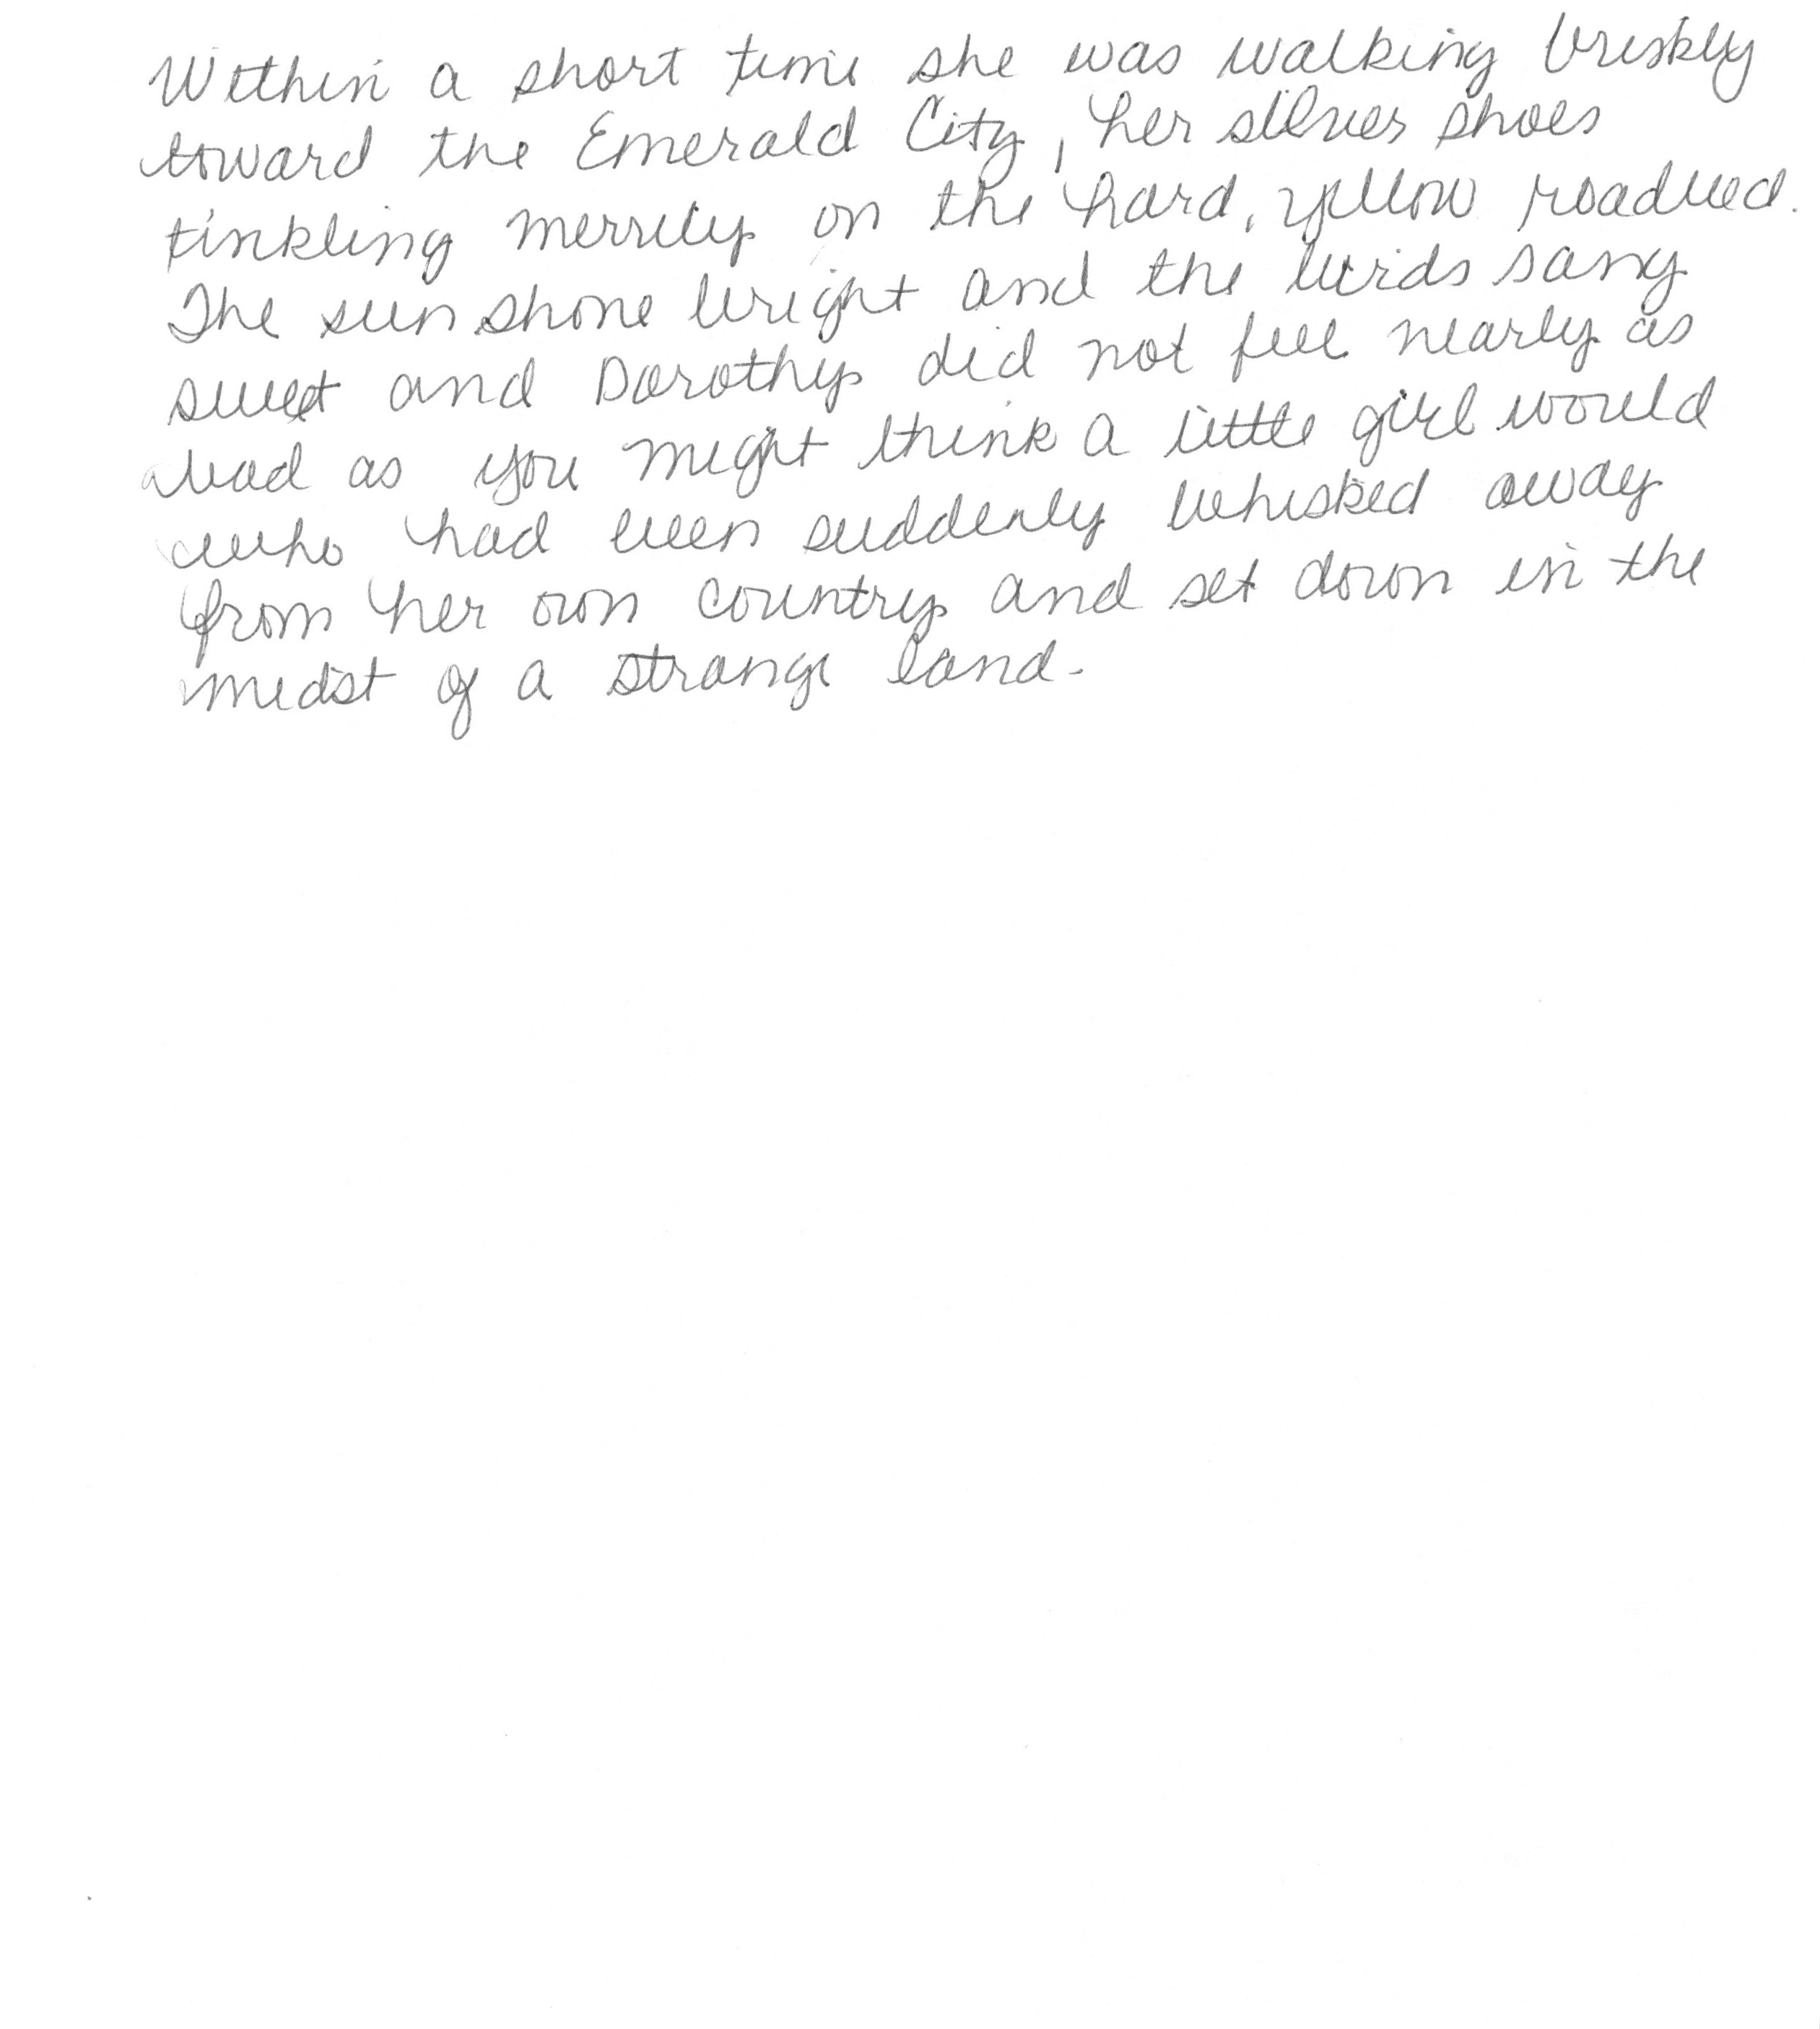 Within a short time she was walking briskly
toward the Emerald City, her silver shoes
tinkling merrily on the hard, yellow roadbed.
The sun shone bright and the birds sang
sweet and Dorothy did not feel nearly as
bad as you might think a little girl would
who had been suddenly whisked away
from her own country and set down in the
midst of a strange land.